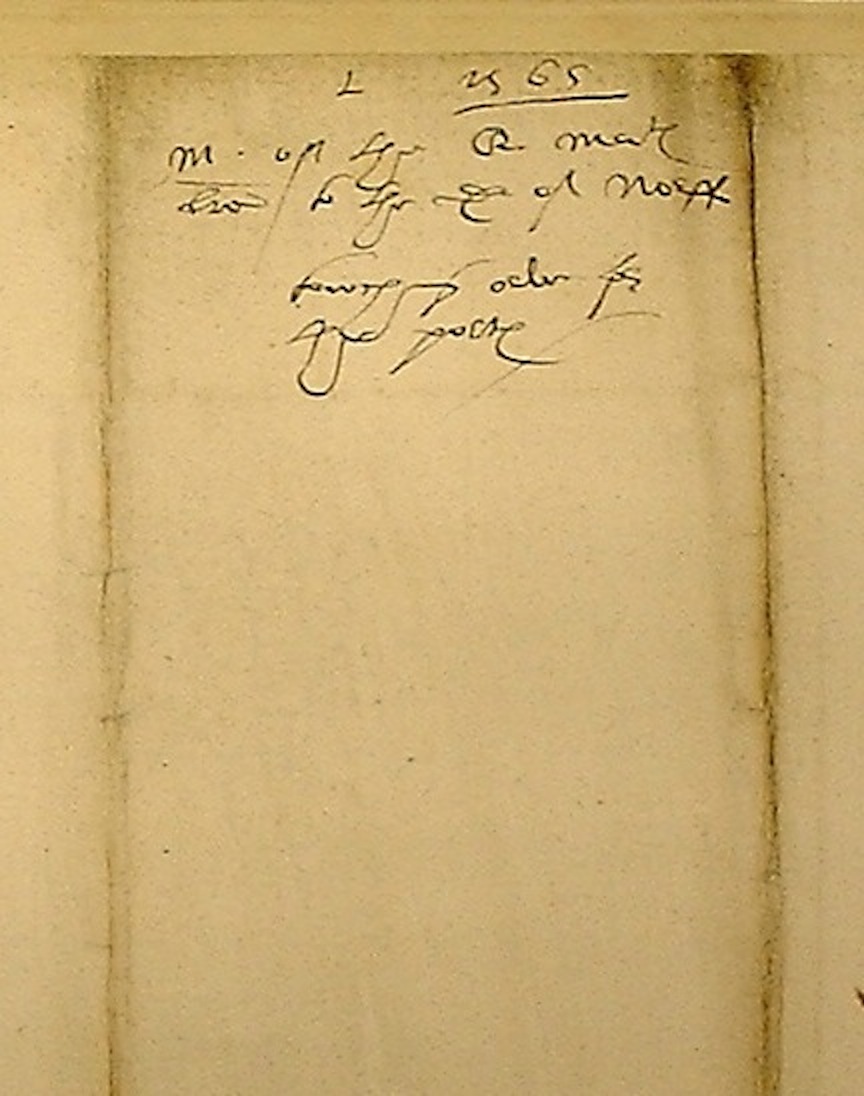 L 1565
M. of the Q. mats
lre to the of Norff
towching order for
the poste